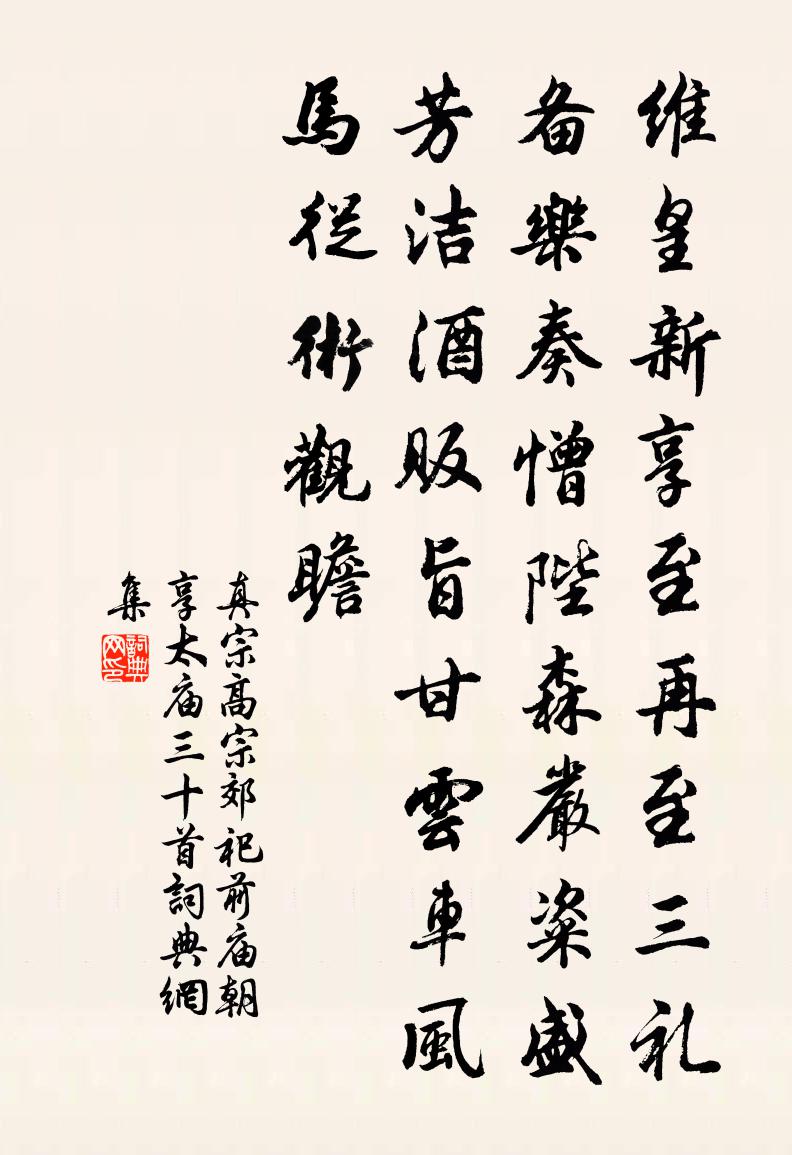 维皇新享至再至三礼
备樂奏憎陛森嚴粢盛
芳洁酒眅旨甘雲車風
馬從術觀瞻
真宗高宗郊祀前庙朝
享太庙三十首詞典網
集
詞典網印